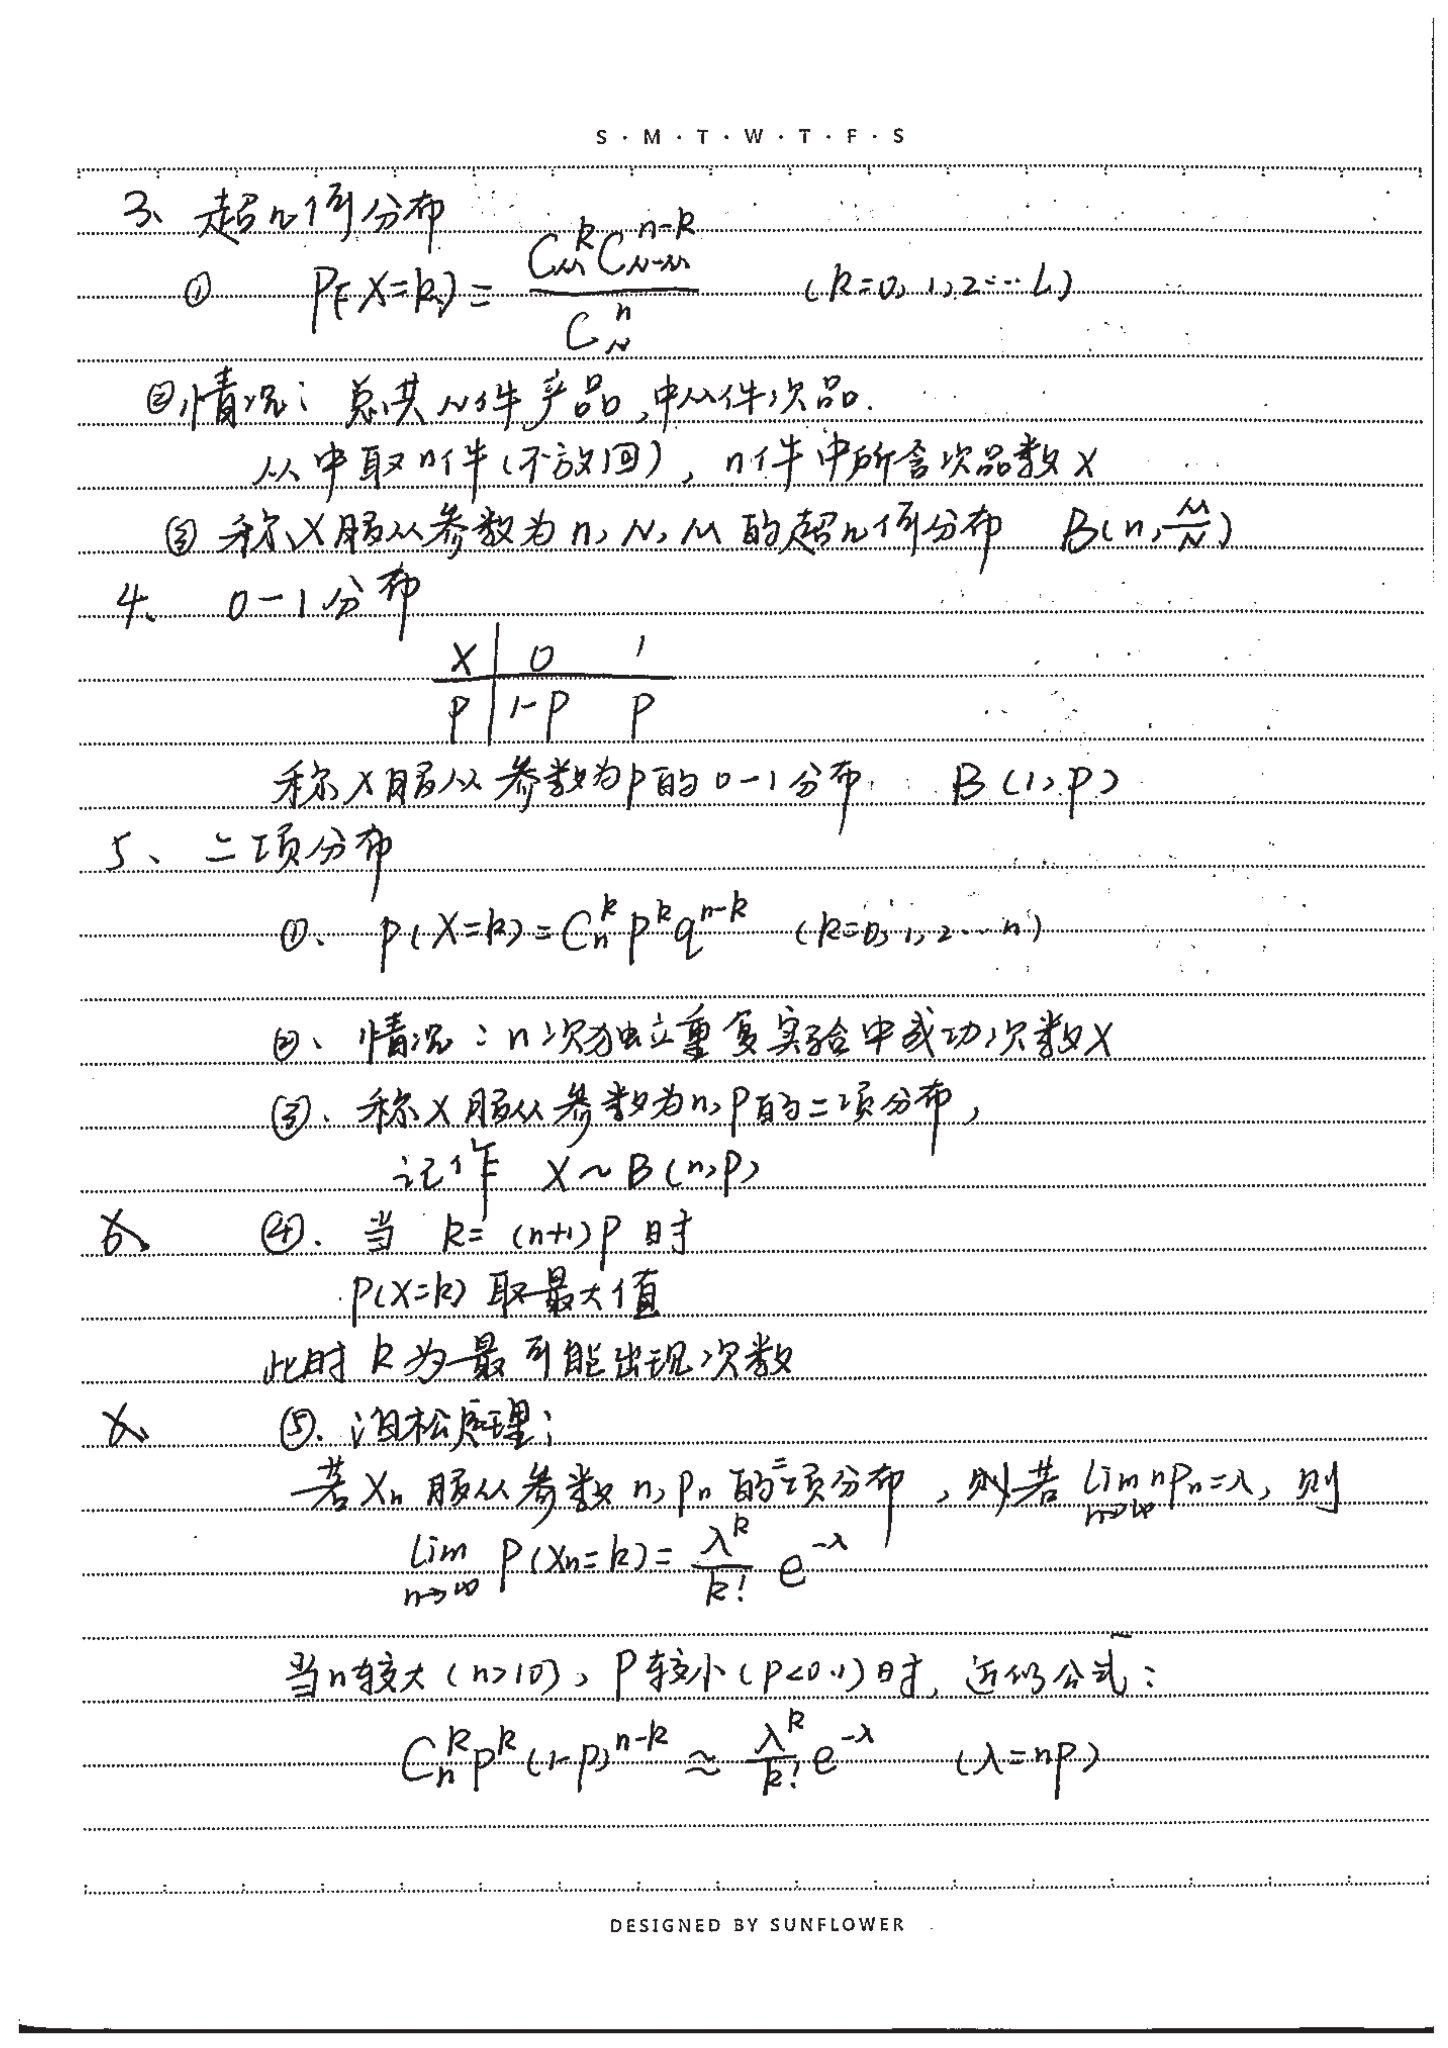 S · M · T · W · T · F · S
3、超几何分布
① P(X=k)= \frac{C_M^k C_{N-M}^{n-k}}{C_N^n} (k=0,1,2…L)
②情况：总共N件产品,中M件次品.
从中取n件(不放回), n件中所含次品数X
③ 称X服从参数为n, N, M的超几何分布 B(n, \frac{M}{N})
4、 0-1分布
X | 0 1
P | 1-P P
称X服从参数为p的0-1分布 B(1,P)
5、二项分布
①、P(X=k)=C_n^k P^k q^{n-k} (k=0,1,2…n)
②、情况：n次独立重复实验中成功次数X
③、称X服从参数为n,P的二项分布,
记作 X~B(n,P)
④. 当 k=(n+1)P 时
P(X=k) 取最大值
此时 k为最可能出现次数
⑤. 泊松原理：
若X_n 服从参数n, P_n 的二项分布, 则若 \lim_{n→∞} nP_n=λ, 则
\lim_{n→∞} P(X_n=k)= \frac{λ^k}{k!} e^{-λ}
当n较大(n>10)、P较小(P<0.1)时, 近似公式：
C_n^k P^k (1-P)^{n-k} ≈ \frac{λ^k}{k!} e^{-λ} (λ=nP)
DESIGNED BY SUNFLOWER